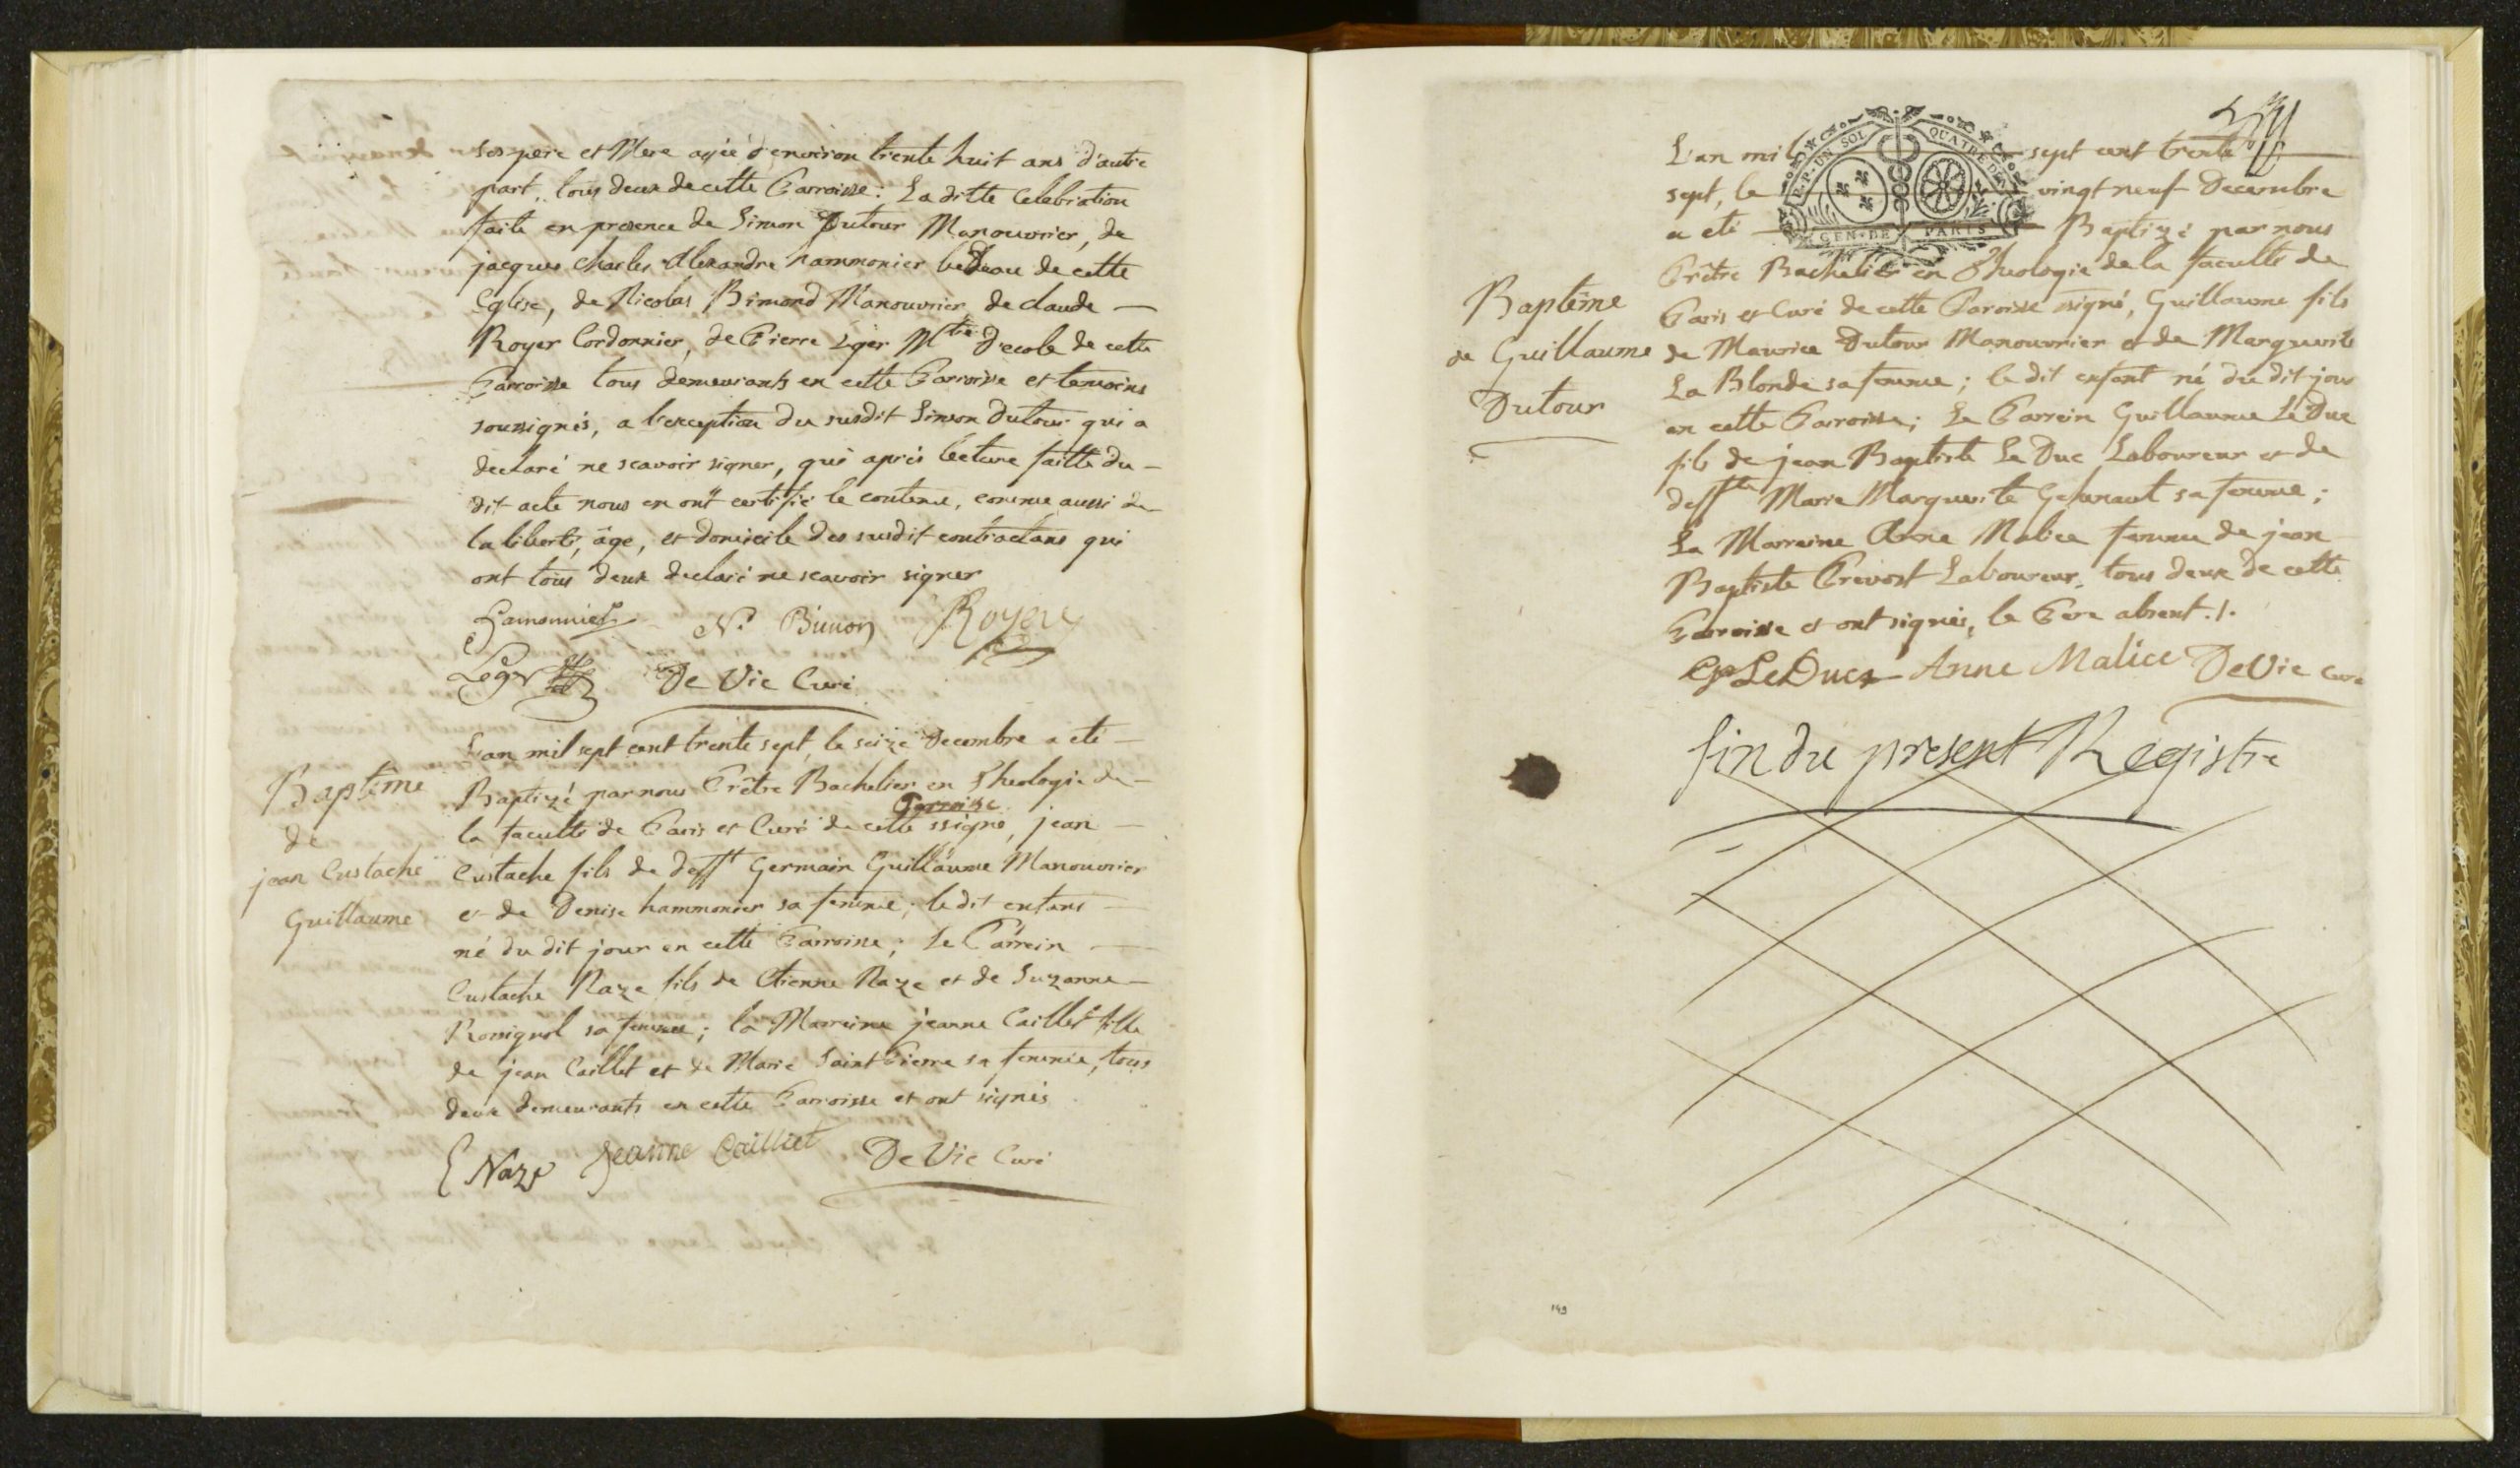 ses pere et Mere agée d'environ trente huit ans d'autre
part, tous deux de cette Parroisse: La ditte Celebration
faite en presence de Simon Dutour Manouvrier, de
jacques charles Alexandre hammonier bedeau de cette
Eglise, de Nicolas Bimond Manouvrier, de claude
Royer Cordonnier, de Pierre Leger Mtre d'ecole de cette
Parroisse tous demeurants en cette Parroisse et temoins
soussignés, a l'exception du susdit Simon Dutour qui a
declaré ne scavoir signer, qui après lecture faitte du
dit acte nous en ont certifié le contenu, comme aussi de
la liberté, âge, et domicile des susdit contractans qui
ont tous deux declaré ne scavoir signer
hamonnier N. Bimon Royer
Leger De Vie Curé
L'an mil sept cent trente sept, le seize Decembre a eté
Baptême
de
jean Eustache
Guillaume
Baptizé par nous Prêtre Bachelier en Theologie de
la faculté de Paris et Curé de cette Parroisse ssigné, jean
Eustache fils de defft Germain Guillaume Manouvrier
et de Denise hammonier sa femme; le dit enfant
né du dit jour en cette Parroisse; Le Parrein
Eustache Naze fils de Etienne Naze et de Suzanne
Rossignol sa femme; la Marreine jeanne Caillet fille
de jean Caillet et de Marie Saint Pierre sa femme, tous
deux demeurants en cette Parroisse et ont signés
E Naze Jeanne Cailliet De Vie Curé
L'an mil sept cent trente
sept, le vingt neuf Decembre
a eté Baptizé par nous
GEN. DE PARIS
UN SOL QUATRE DEN
Prêtre Bachelier en Theologie de la faculté de
Baptême
de Guillaume
Dutour
Paris et Curé de cette Paroisse ssigné, Guillaume fils
de Maurice Dutour Manouvrier et de Marguerite
La Blonde sa femme; le dit enfant né du dit jour
en cette Parroisse; Le Parrein Guillaume Le Duc
fils de jean Baptiste Le Duc Laboureur et de
deffte Marie Marguerite sa femme;
La Marreine Anne Malice femme de jean
Baptiste Prevost Laboureur, tous deux de cette
Parroisse et ont signés, le Pere absent./.
G LeDuc Anne Malice De Vie Curé
fin du present Registre
149